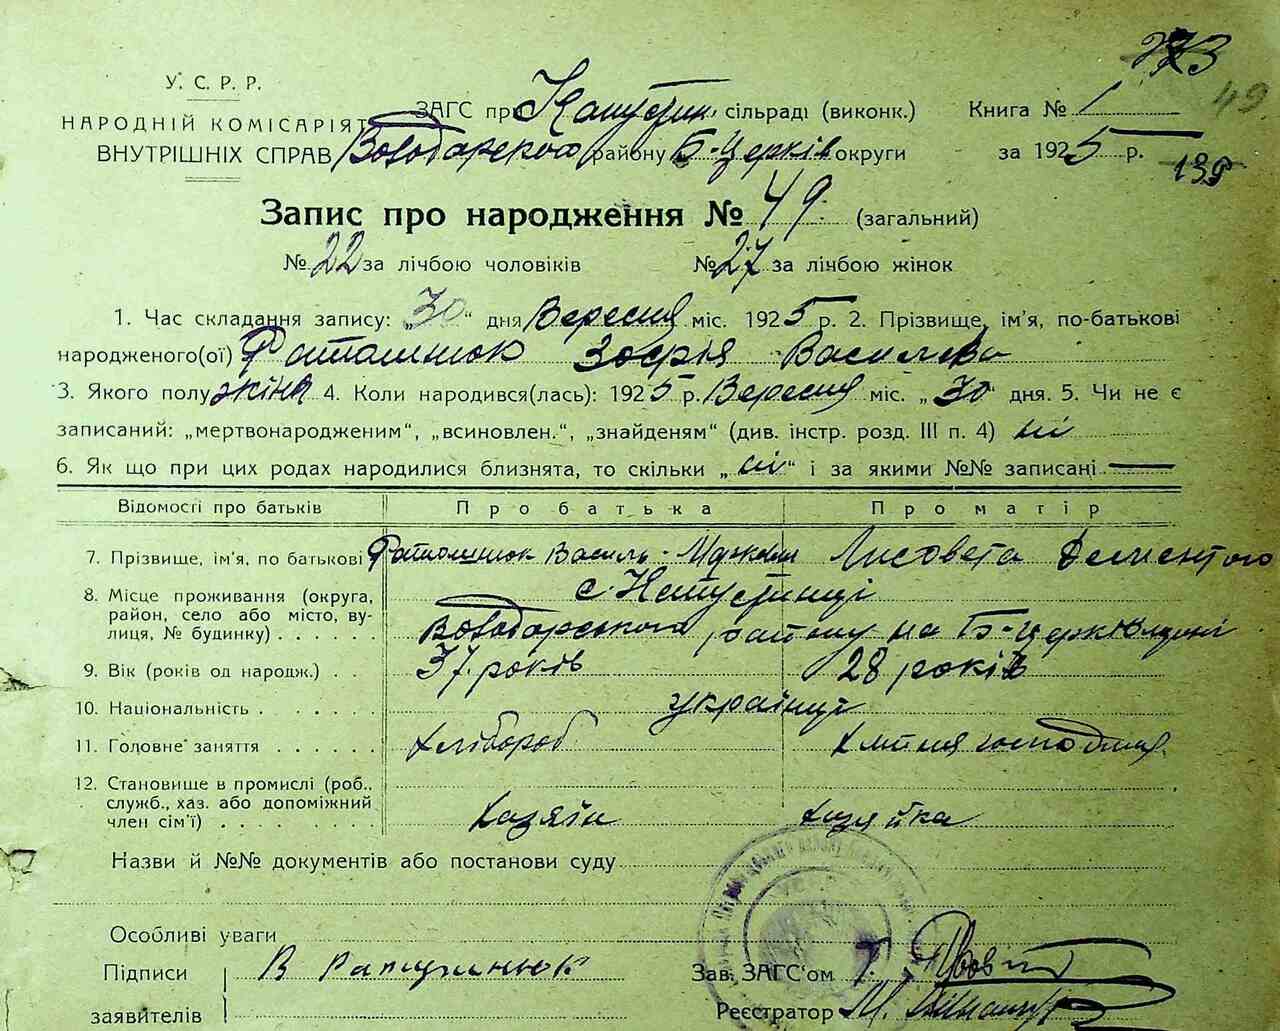 49
У. С. Р. Р.
НАРОДНІЙ КОМІСАРІЯТ
ВНУТРІШНІХ СПРАВ
ЗАГС при Капустин. сільраді (виконк.) Книга № 1
Володарского району Б-Церків округи за 1925 р.
139
Запис про народження № 49. (загальний)
№ 22 за лічбою чоловіків № 27 за лічбою жінок
1. Час складання запису: „30“ дня Вересня міс. 1925 р. 2. Прізвище, ім'я, по-батькові
народженого(ої) Зофія Василева
3. Якого полу жіно 4. Коли народився(лась): 1925 р. Вересня міс. „30“ дня. 5. Чи не є
записаний: „мертвонародженим“, „всиновлен.“, „знайденям“ (див. інстр. розд. III п. 4) ні
6. Як що при цих родах народилися близнята, то скільки „ні“ і за якими №№ записані —
Відомості про батьків Про батька Про матір
7. Прізвище, ім'я, по батькові Василь Лисовета
8. Місце проживання (округа, район, село або місто, вулиця, № будинку) с. Капустинці
Володарського району на Б-Церківщині
9. Вік (років од народж.) 37 років 28 років
10. Національність українці
11. Головне заняття хлібороб хатня господиня
12. Становище в промислі (роб., служб., хаз. або допоміжний член сім'ї) хазяїн хазяйка
Назви й №№ документів або постанови суду
Особливі уваги
Підписи В
заявителів
Зав. ЗАГС'ом
Реєстратор М.